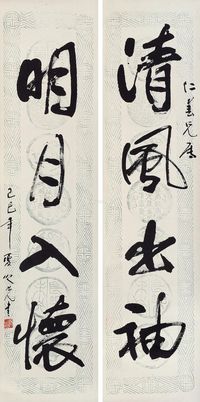 清風出袖
仁善兄屬
明月入懷
己巳年